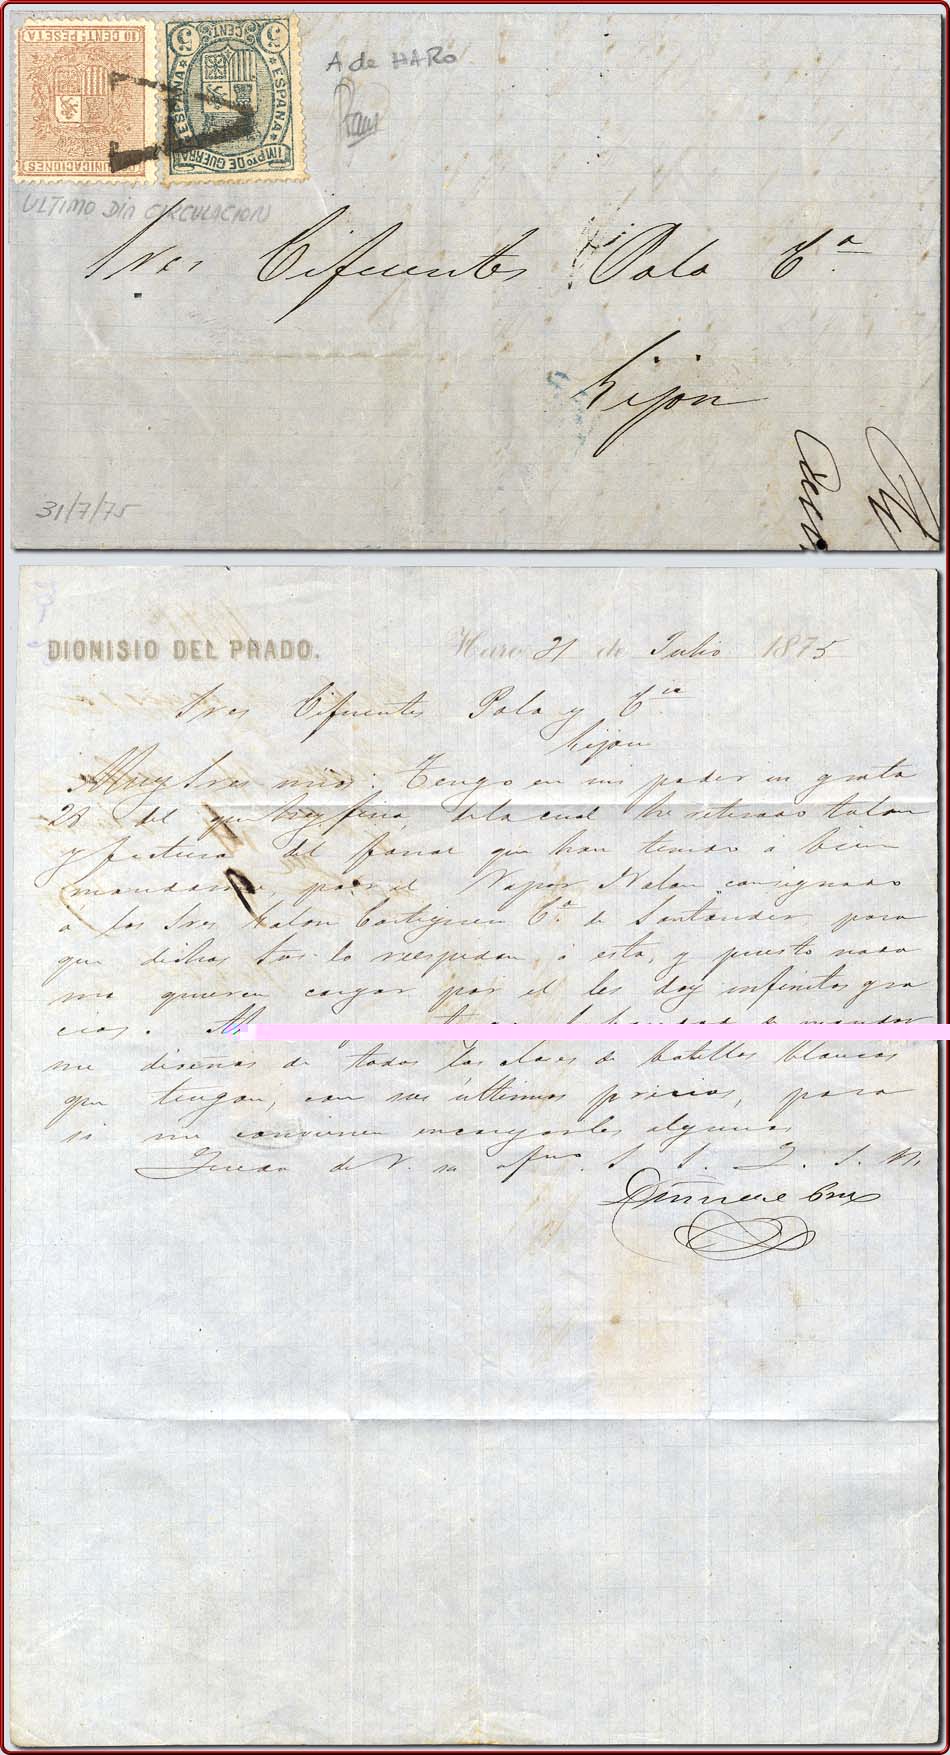 10 CENT. PESETA
COMUNICACIONES
5 CENT. 5
ESPAÑA ESPAÑA
IMPTO DE GUERRA
A de HARO
ULTIMO DIA CIRCULACION
Sres Cifuentes Pola Cª.
Gijon
31/7/75
DIONISIO DEL PRADO.
Haro 31 de Julio 1875
Sres Cifuentes Pola y Cia
Gijon
Muy Sres mios: Tengo en mi poder su grata
28 del que hoy fina, de la cual he retirado talon
y factura del que han tenido a bien
mandarme, por el Vapor consignado
a los Sres Cª de Santander para
que dichos Sres lo reespidan a esta, y puesto nada
me quieren cargar por el les doy infinitas gra
cias.
me diseños de todas las clases de botellas blancas
que tengan, con sus últimos precios, para
si me convienen encargarles algunas
Queda de V. su afmo. S. S. Q. S. M.